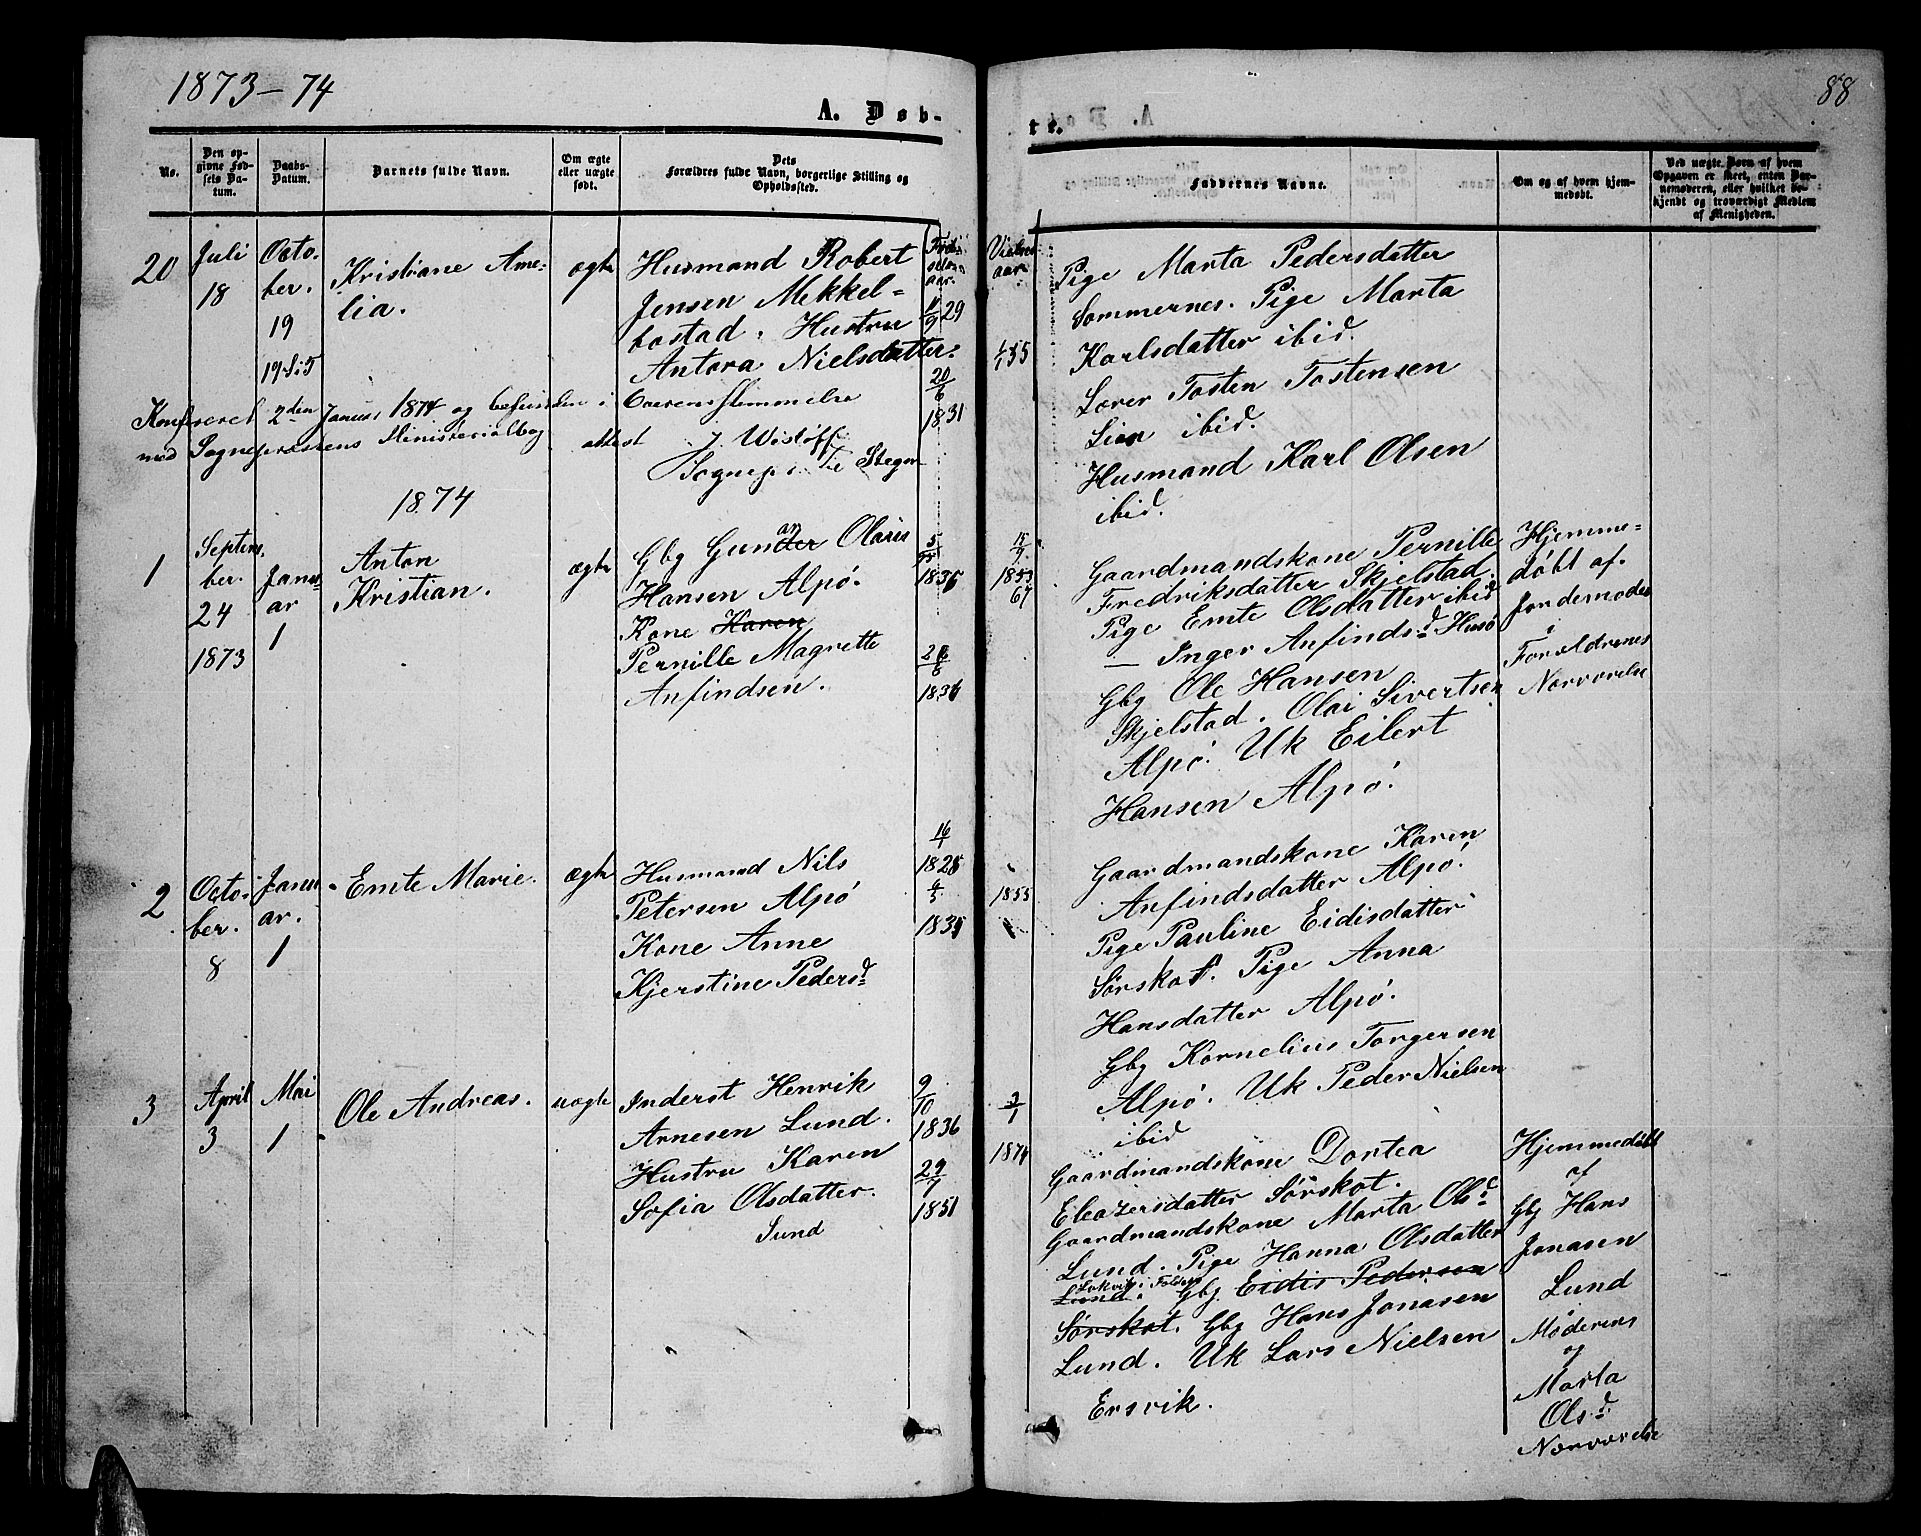 1873-74
88
A. Døb-
te.
No.
Den op-
givne Fød-
sels Da-
tum.
Daabs-
Datum.
Barnets fulde Navn.
Om ægte
eller uægte
født.
Dets
Forældres fulde Navn, borgerlige Stilling og
Opholdssted.
Faddernes Navne.
Om og af hvem hjem-
medøbt.
Ved uægte Børn af hvem
Opgaven er skeet, enten Bar-
nemoderen, eller hvilket be-
kjendt og troværdigt Medlem
af Menigheden.
20
Juli
18
Octo-
ber.
19
Kristiane Ame-
lia.
ægte
Husmand Robert
Jensen Mekkel-
bostad. Hustru
Antora Nielsdatter.
9 29
20/6
1831
Vielses
aar.
Pige Marta Pedersdatter
Sommernes. Pige Marta
Karlsdatter ibid.
Lærer Tosten Tostensen
Lien ibid.
Husmand Karl Olsen
ibid.
Konfereret 2den Januar 1874 og befunden i Overensstemmelse
med Sognepræstens Ministerialbog attest J. Wisløff
Sognep. i Steger
1874
1
Septem-
ber.
24
1873
Janu-
ar
1
Anton
Kristian.
ægte
Gbg Gunder Olaus
Hansen Alpø.
Kone Karen
Pernille Magrette
Anfindsen.
1836
1836
15/9
1853
67
Gaardmandskone Pernille
Fredriksdatter Skjelstad.
Pige Emte Olsdatter ibid
— Inger Anfindsd Husø
Gbg Ole Hansen
Skjelstad. Olai Sivertsen
Alpø. Uk Eilert
Hansen Alpø.
Hjemme-
døbt af
Jordemoder
i
Forældrenes
Nærværelse
2
Octo-
ber.
8
Janu-
ar.
1
Emte Marie.
ægte
Husmand Nils
Petersen Alpø
Kone Anne
Kjerstine Pedersd
16/1
1825
4/5
1835
1855
Gaardmandskone Karen
Anfindsdatter Alpø.
Pige Pauline Eidisdatter
Sørskot. Pige Anna
Hansdatter Alpø.
Gbg Kornelius Torgersen
Alpø. Uk Peder Nielsen
ibid
3
April
3
Mai
1
Ole Andreas.
uægte
Inderst Henrik
Arnesen Lund.
Hustru Karen
Sofia Olsdatter.
Lund
9/10
1836
29/7
1851
2/1
1874
Gaardmandskone Dortea
Eleazersdatter Sørskot.
Gaardmandskone Marta Olsd
Lund. Pige Hanna Olsdatter
Lund. Gbg Eidis Pedersen
Sørskot. Gbg Hans Jonasen
Lund. Uk Lars Nielsen
Ersvik.
Hjemmedøbt
af
Gbg Hans
Jonasen
Lund
Moderens
og
Marta
Olsd
Nærværelse